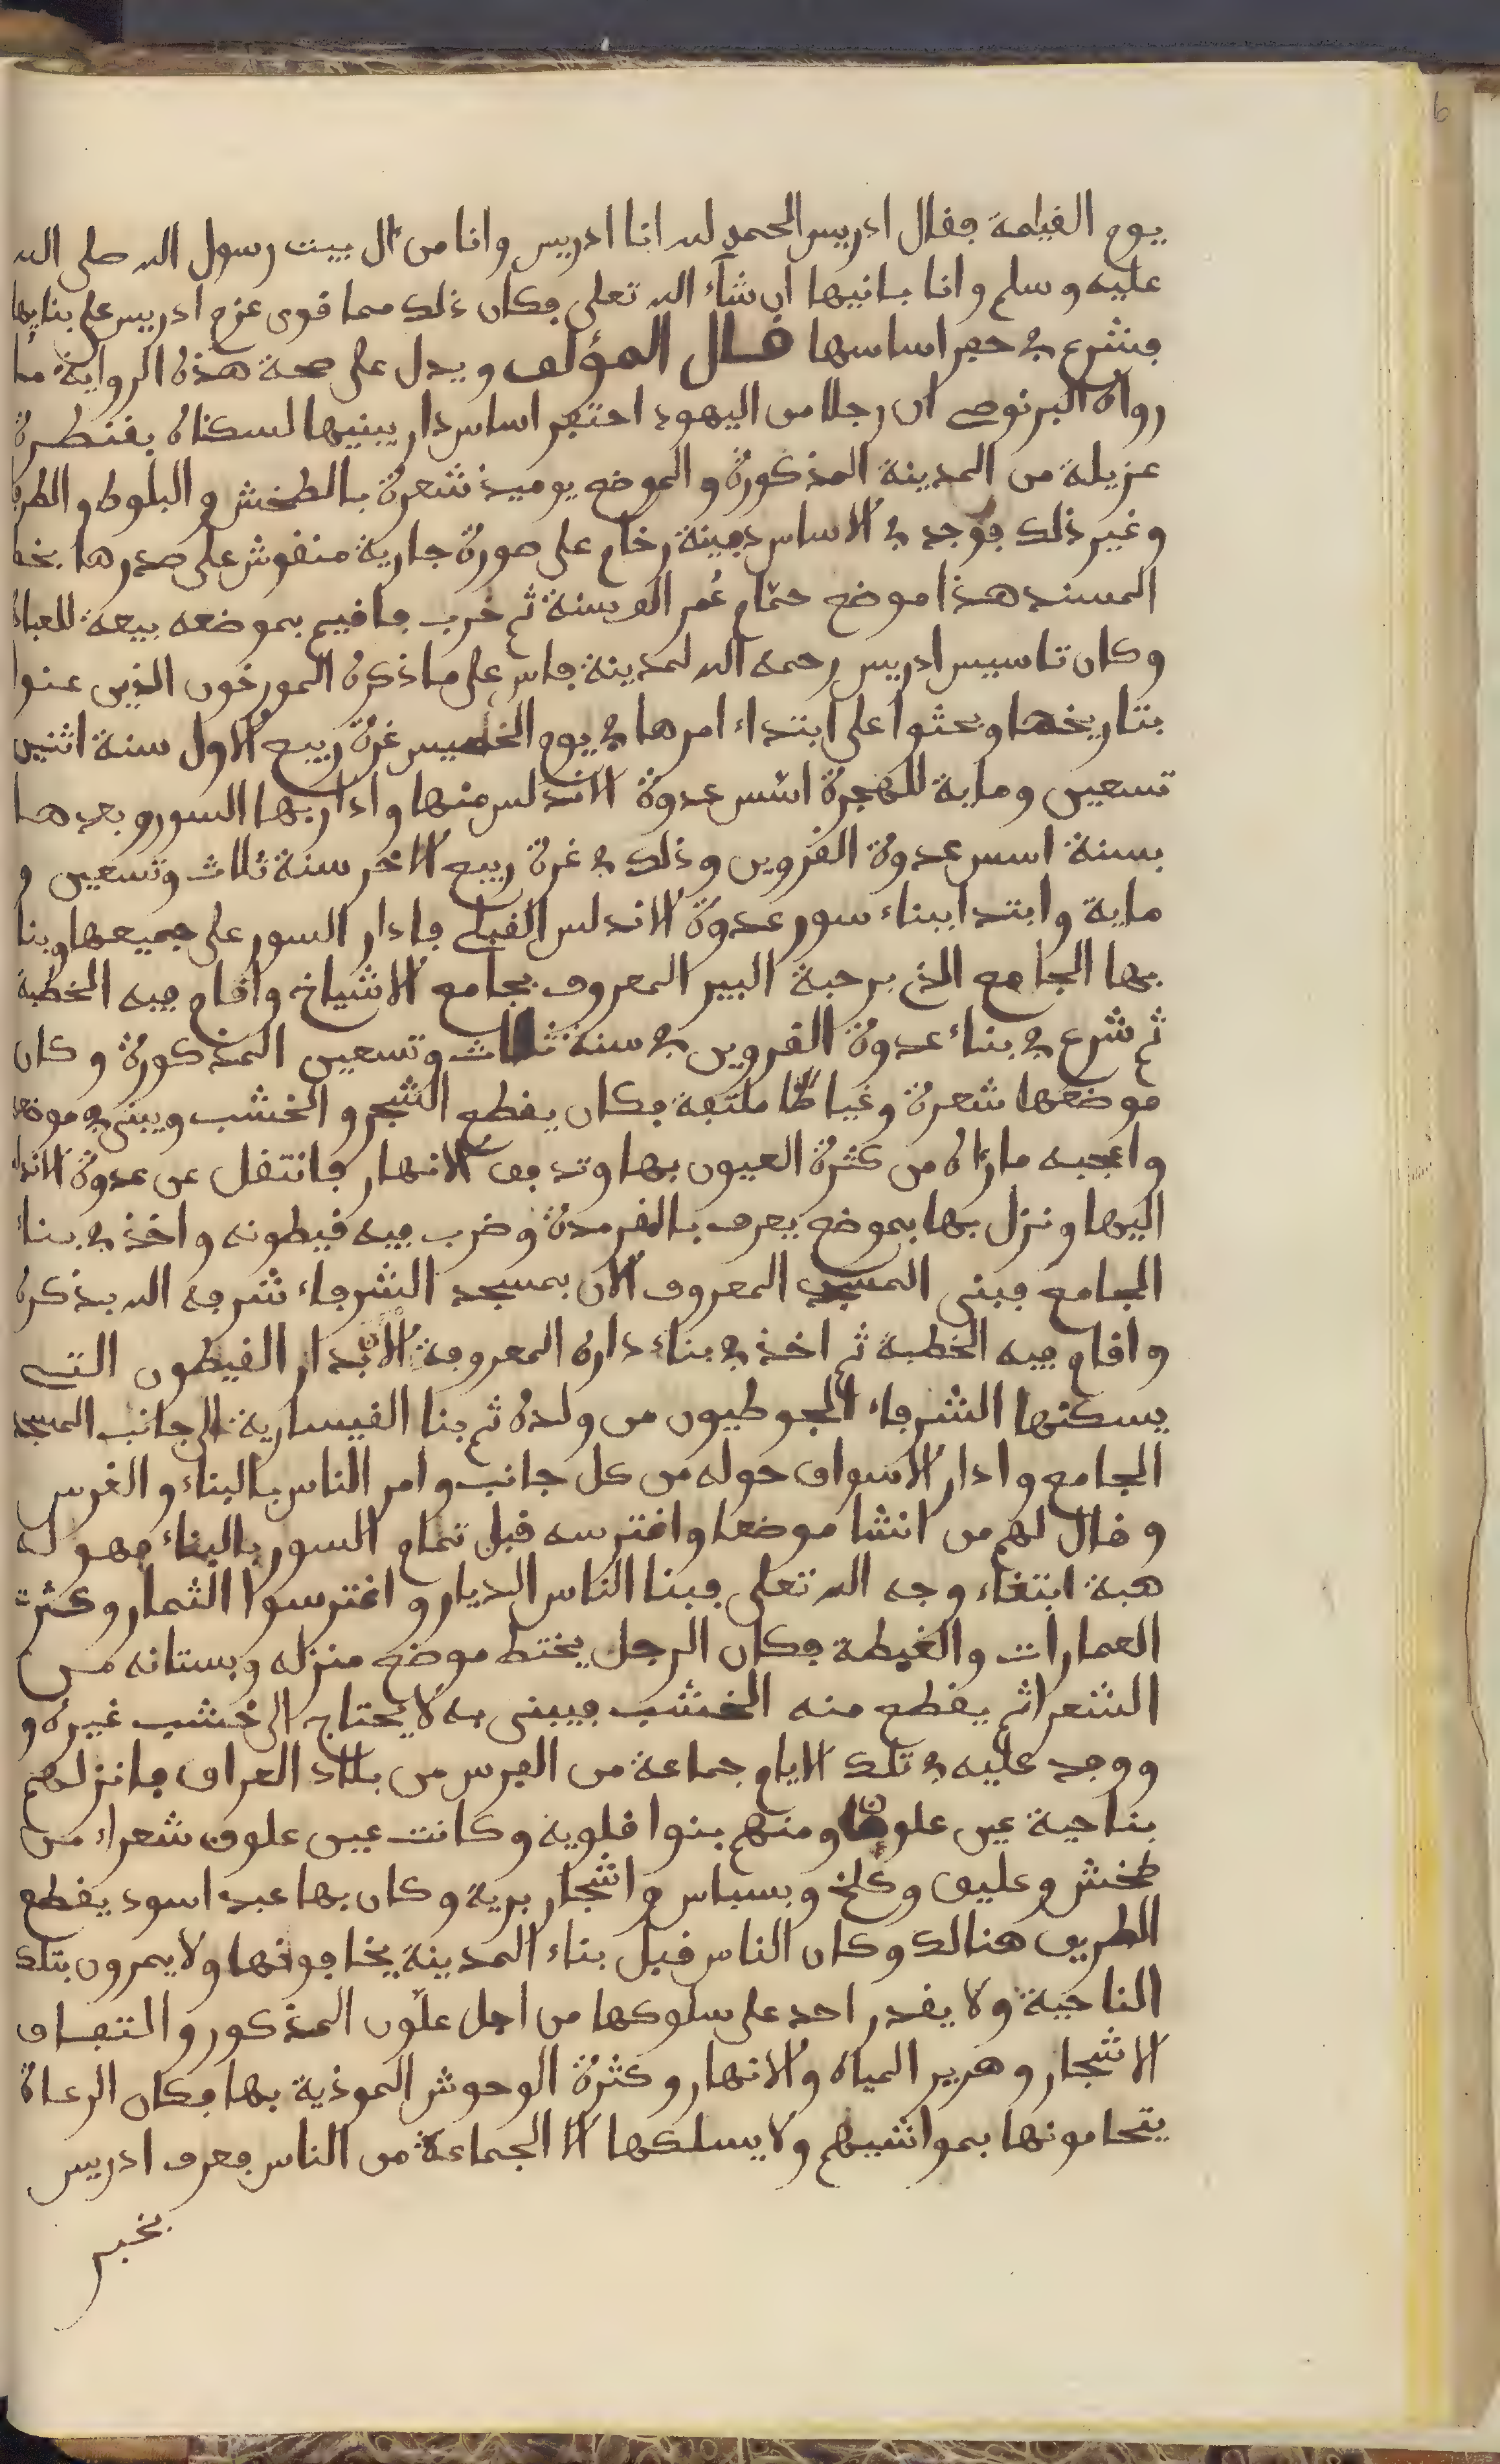 6
يوم القيامة فقال ادريس الحمد لله انا ادريس وانا من ال بيت رسول الله صلى الله
عليه وسلم وانا بانيها ان شاء الله تعلى فكان ذلك مما قوى عزم ادريس على بنايها
فشرع في حفر اساسها قال المؤلف ويدل على صحة هذه الرواية ما
رواه البرنوصي ان رجلا من اليهود احتفر اساس دار يبنيها لسكناه بقنطرة
عزيلة من المدينة المذكورة والموضع يوميذ شعرة بالطخش والبلوط والطر
وغير ذلك فوجد في الاساس دمينة رخام على صورة جارية منقوش على صدرها بخط
المسند هذا موضع حمام عُمر الف سنة ثم خرب فاقيم بموضعه بيعة للعباد
وكان تاسيس ادريس رحمه الله لمدينة فاس على ما ذكره المورخون الذين عنوا
بتاريخها وبحثوا على ابتداء امرها في يوم الخميس غرة ربيع الاول سنة اثنين
تسعين وماية للهجرة اسس عدوة الاندلس منها وادار بها السور وبعدها
بسنة اسس عدوة القرويين وذلك في غرة ربيع الاخر سنة ثلاث وتسعين و
ماية وابتدا ببناء سور عدوة الاندلس القبلي فادار السور على جميعها وبنا
بها الجامع الذي برحبة البير المعروف بجامع الاشياخ واقام فيه الخطبة
ثم شرع في بناء عدوة القرويين في سنة ثلاث وتسعين المذكورة وكان
موضعها شعرة وغياطا ملتفة فكان يقطع الشجر والخشب ويبني في موضعه
واعجبه ما راه من كثرة العيون بها وتدفق الانهار فانتقل عن عدوة الاندل
اليها ونزل بها بموضع يعرف بالقرمدة وضرب فيه قيطونه واخذ في بناء
الجامع فبنى المسجد المعروف الان بمسجد الشرفاء شرفه الله بذكره
واقام فيه الخطبة ثم اخذ في بناء داره المعروفة الان بدار القيطون التي
يسكنها الشرفاء الجوطيون من ولده ثم بنا القيسارية الى جانب المسجد
الجامع وادار الاسواق حوله من كل جانب وامر الناس بالبناء والغرس
وقال لهم من انشا موضعا واغترسه قبل تمام السور بالبناء فهو له
هبة ابتغاء وجه الله تعلى فبنا الناس الديار واغترسوا الثمار وكثرت
العمارات والغبطة فكان الرجل يختط موضع منزله وبستانه من
الشعرا ثم يقطع منه الخشب فيبني به لا يحتاج الى خشب غيره و
ووفد عليه في تلك الايام جماعة من الفرس من بلاد العراق فانزلهم
بناحية عين علون ومنهم بنوا فلوية وكانت عين علون شعراء من
طخش وعليق وكلخ وبسباس واشجار برية وكان بها عبد اسود يقطع
الطريق هنالك وكان الناس قبل بناء المدينة يخافونها ولا يمرون بتلك
الناحية ولا يقدر احد على سلوكها من اجل علون المذكور والتفاف
الاشجار وهرير المياه والانهار وكثرة الوحوش الموذية بها فكان الرعاة
يتحامونها بمواشيهم ولا يسلكها الا الجماعة من الناس فعرف ادريس
بخبر